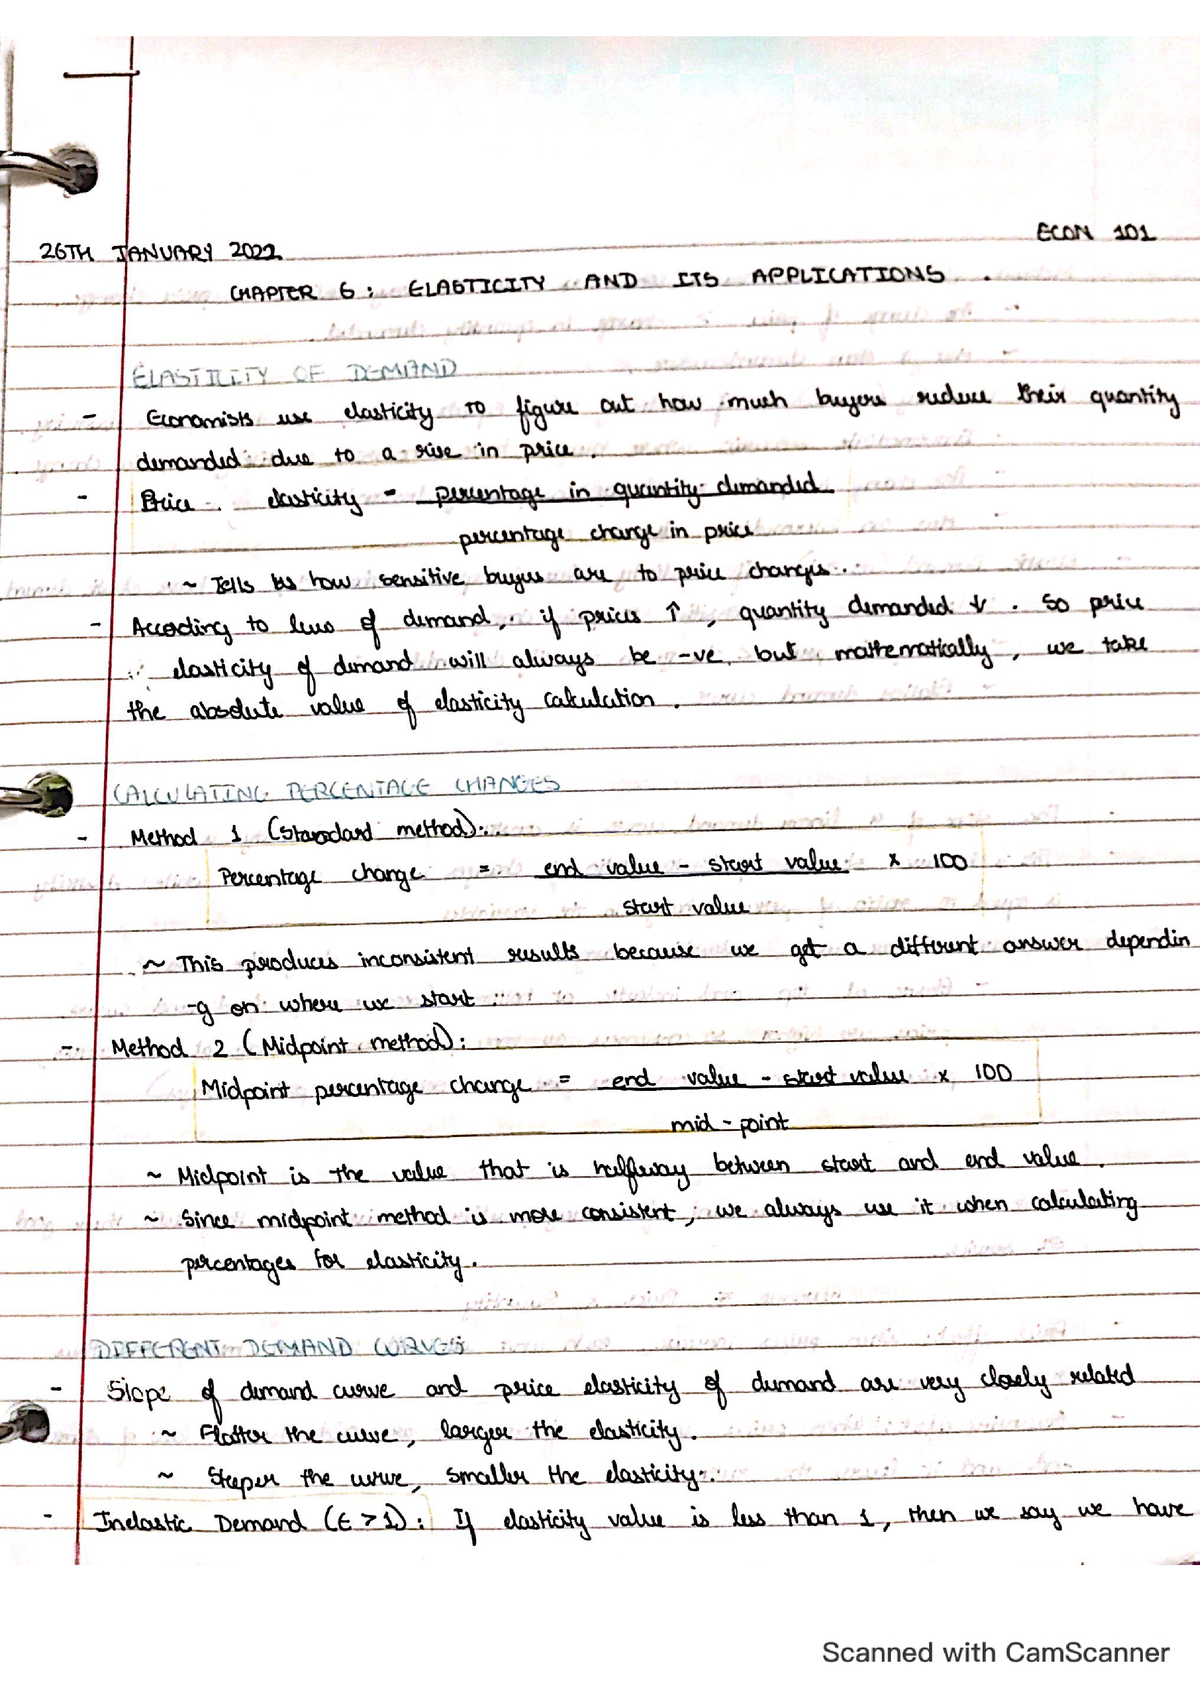 ECON 101
26TH JANUARY 2022
CHAPTER 6: ELASTICITY AND ITS APPLICATIONS
ELASTICITY OF DEMAND
- Economists use elasticity to figure out how much buyers reduce their quantity
demanded due to a rise in price.
- Price elasticity = percentage in quantity demanded
percentage change in price
~ Tells us how sensitive buyers are to price changes.
- According to laws of demand, if prices ↑, quantity demanded ↓. So price
elasticity of demand will always be -ve but mathematically, we take
the absolute value of elasticity calculation.
CALCULATING PERCENTAGE CHANGES
- Method 1 (Standard method):
Percentage change = end value - start value x 100
start value
~ This produces inconsistent results because we get a different answer dependin
-g on where we start.
- Method 2 (Midpoint method):
Midpoint percentage change = end value - start value x 100
mid-point
~ Midpoint is the value that is halfway between start and end value.
~ Since midpoint method is more consistent, we always use it when calculating
percentages for elasticity.
DIFFERENT DEMAND CURVES
- Slope of demand curve and price elasticity of demand are very closely related
~ Flatter the curve, larger the elasticity.
~ Steeper the curve, smaller the elasticity.
- Inelastic Demand (E > 1): If elasticity value is less than 1, then we say we have
Scanned with CamScanner